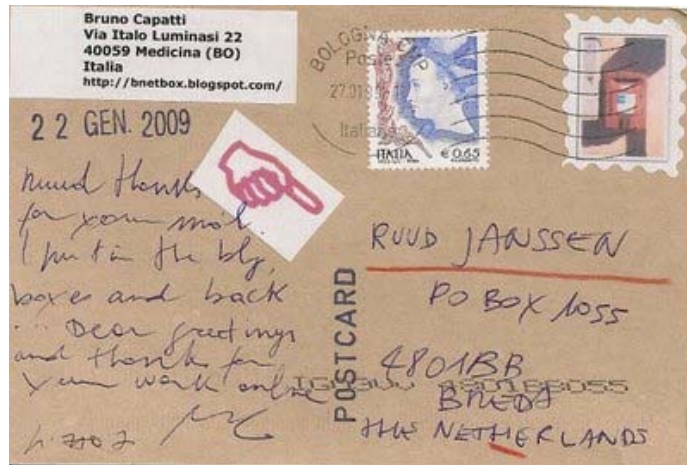 Bruno Capatti
Via Italo Luminasi 22
40059 Medicina (BO)
Italia
http://bnetbox.blogspot.com/
BOLOGNA CMP
Poste
Italiane
ITALIA € 0.65
22 GEN. 2009
thanks
for your mail.
I put in the
boxes and back
... Dear greetings
and thanks for
your work online
POSTCARD
RUUD JANSSEN
PO BOX 1055
4801BB
BREDA
THE NETHERLANDS